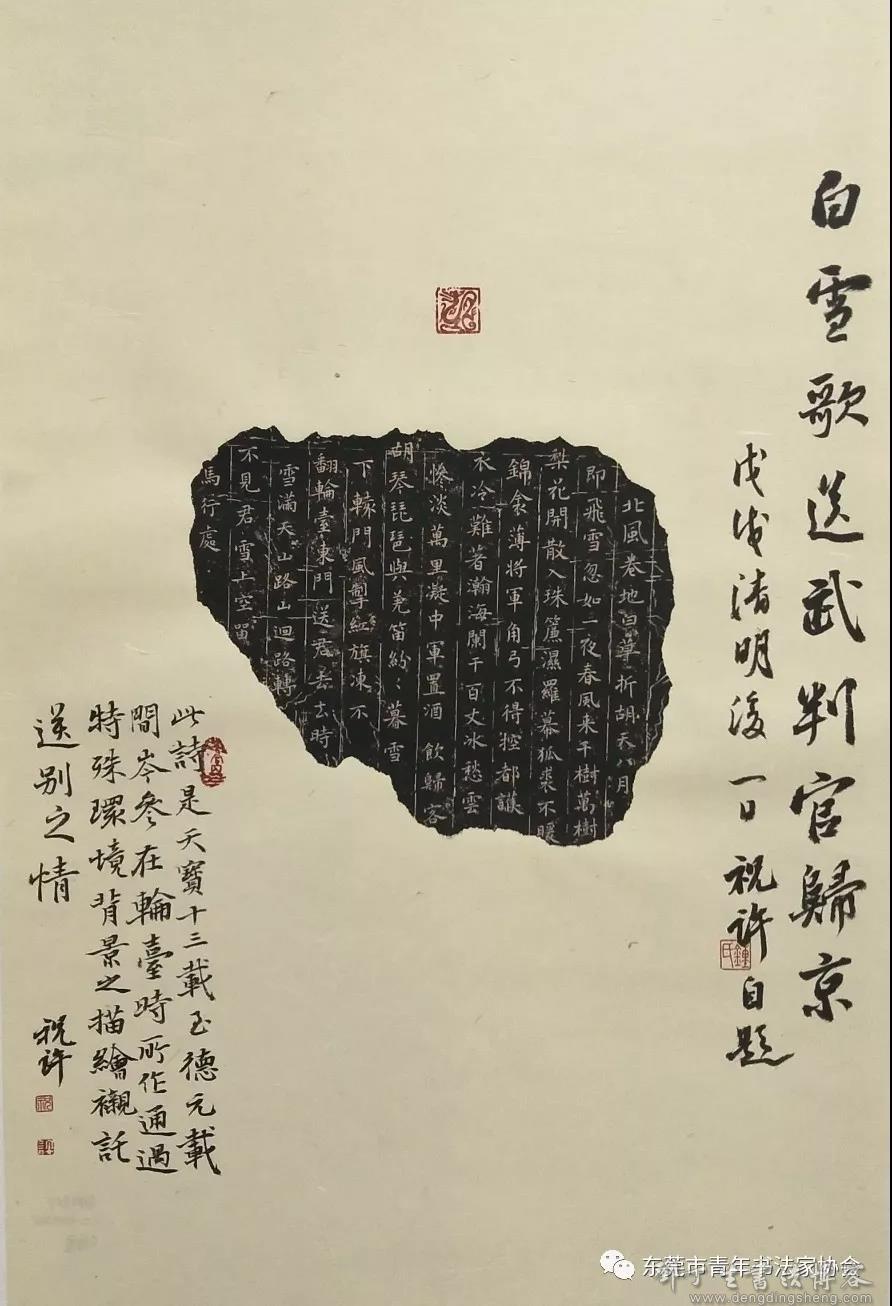 白雪歌送武判官歸京
戊戌清明後一日祝許自題
鍾氏
北風卷地白草折胡天八月
即飛雪忽如一夜春風来千樹萬樹
梨花開散入珠簾濕羅幕狐裘不暖
錦衾薄将軍角弓不得控都護
衣冷難著瀚海闌干百丈冰愁雲
慘淡萬里凝中軍置酒飲歸客
胡琴琵琶與羌笛紛〻暮雪
下轅門風掣紅旗凍不
翻輪臺東門送君去去時
雪滿天山路山迴路轉
不見君雪上空留
馬行處
此詩是天寶十三載至德元載
間岑參在輪臺時所作通過
特殊環境背景之描繪襯託
送別之情
祝許
东莞市青年书法家协会
邓丁生書法博客
www.dengdingsheng.com